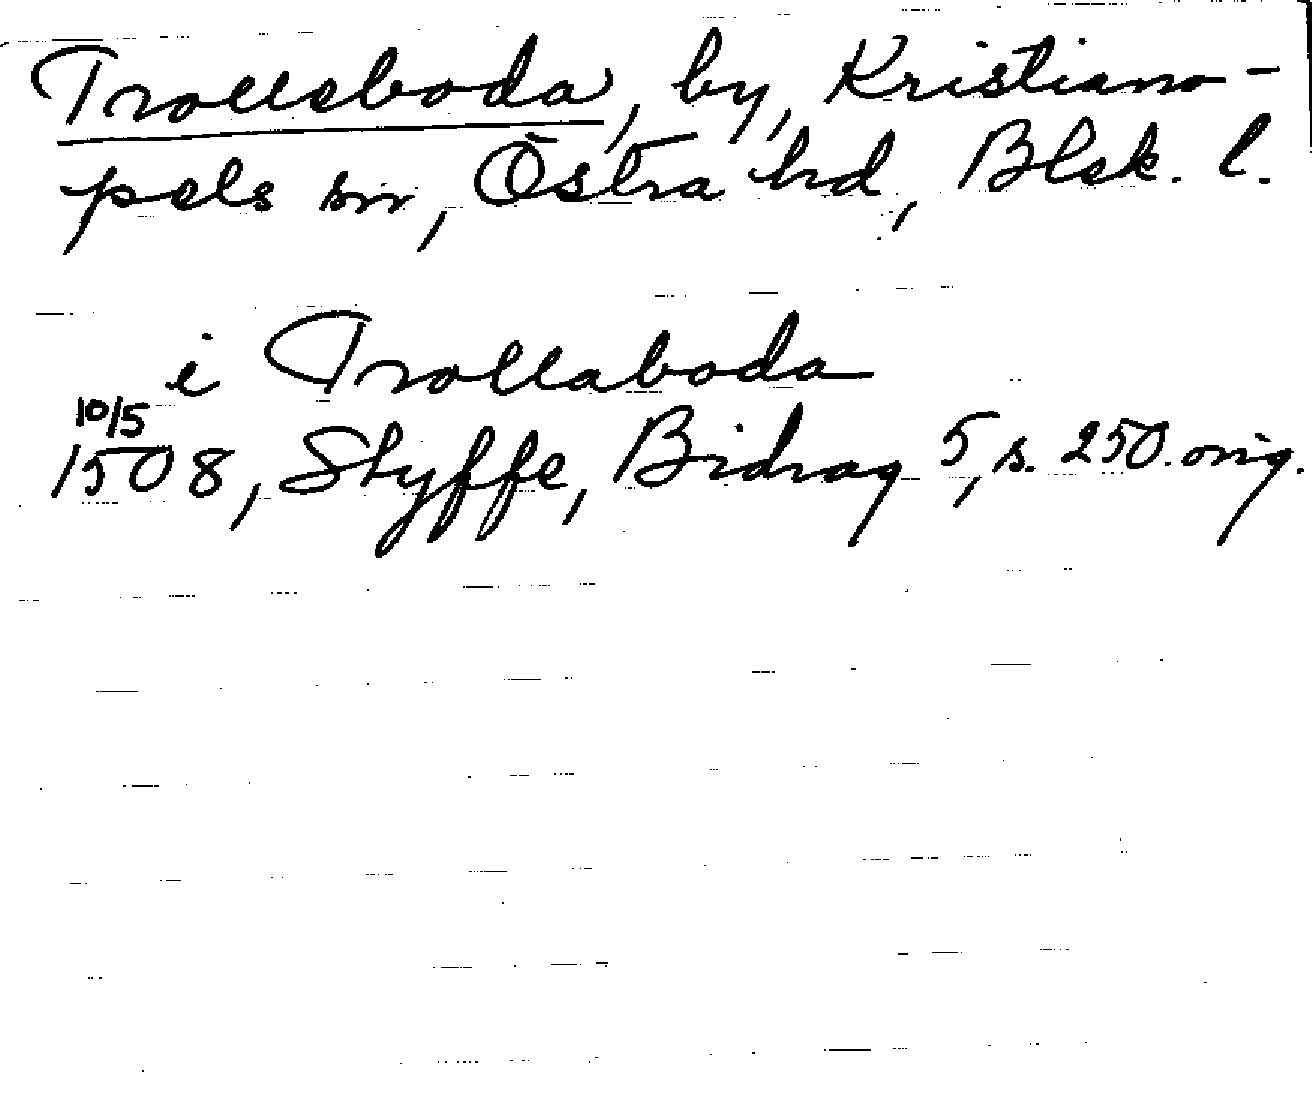 Trollsboda, by, Kristiano-
pels sn, Östra hd, Blek. l.
i Trollaboda
10/5
1508, Styffe, Bidrag 5, s. 250. orig.